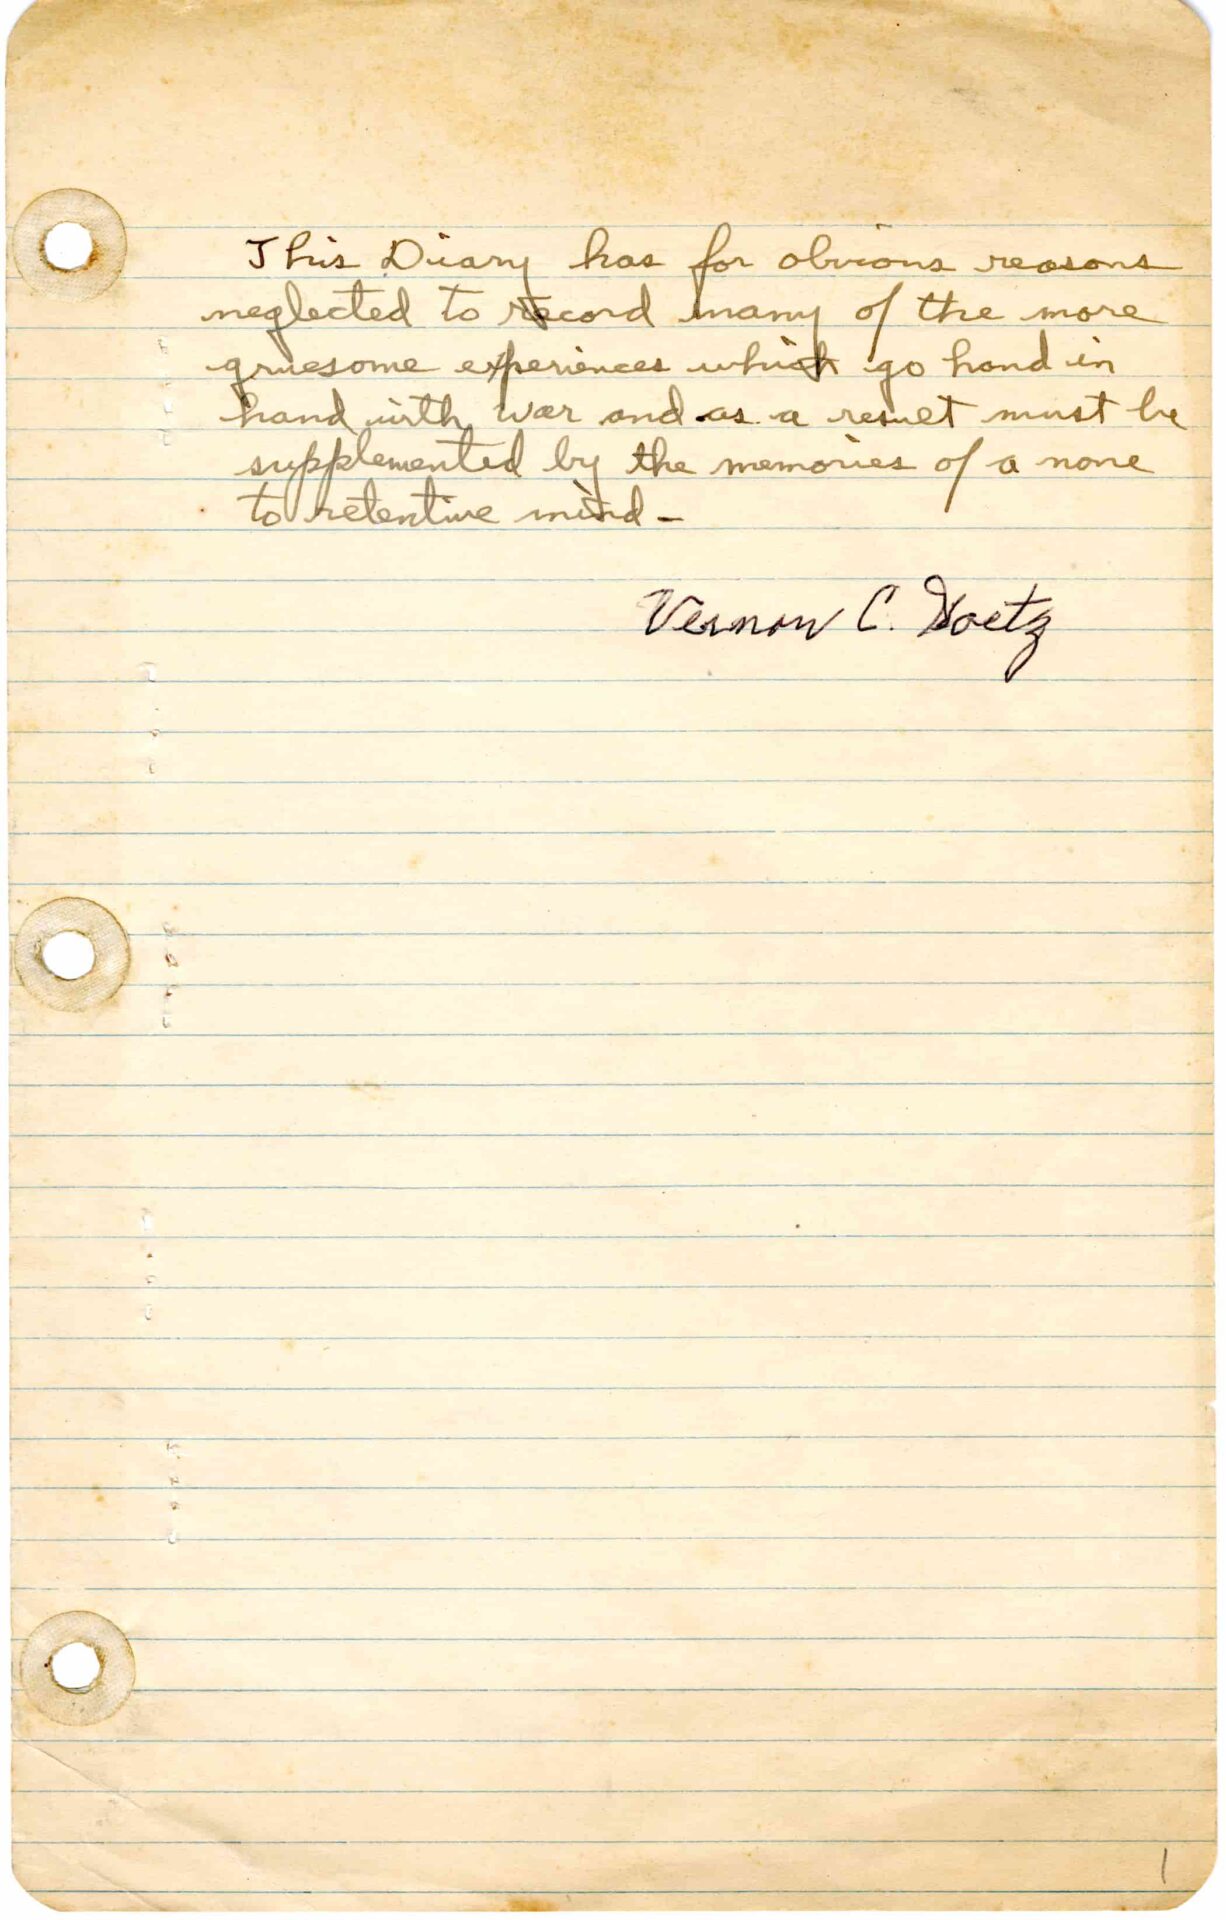 This Diary has for obvious reasons
neglected to record many of the more
gruesome experiences which go hand in
hand with war and as a result must be
supplemented by the memories of a none
to retentive mind-
Vernon C.
1